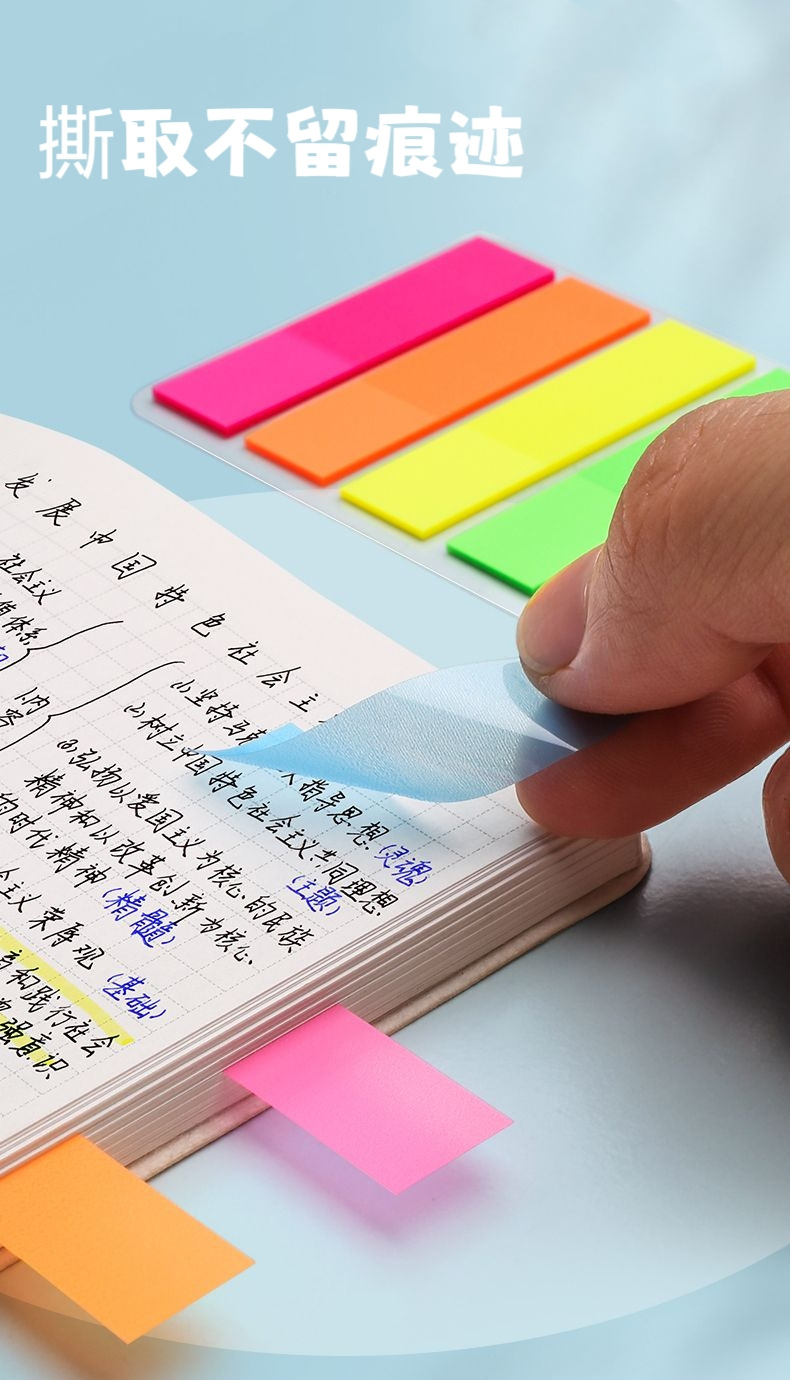 撕取不留痕迹
发展中国特色社会主
社会主义
值体系
内容
(1)坚持马
指导思想(灵魂)
(2)树立中国特色社会主义共同理想
(主题)
(3)弘扬以爱国主义为核心的民族
精神和以改革创新为核心
的时代精神(精髓)
会主义荣辱观(基础)
和践行社会
强意识